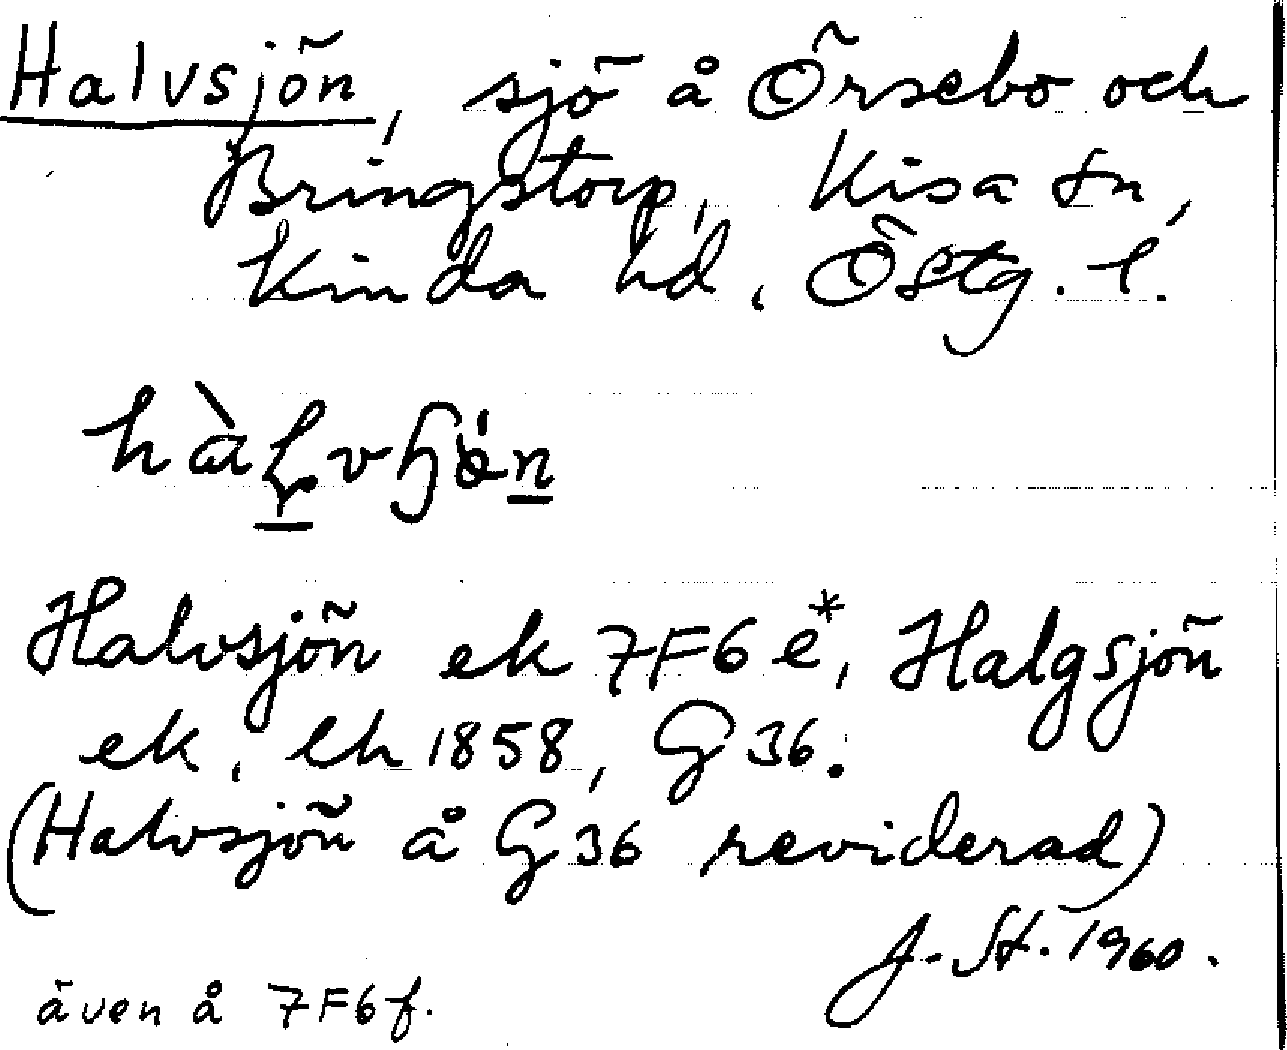 Halvsjön, sjö å Örsebo och
Bringstorp, Kisa sn,
Kinda hd, Östg. l.
Halvsjön ek 7F6e*, Halgsjön
ek, lh 1858, G 36.
(Halvsjön å G 36 reviderad)
J. St. 1960.
även å 7F6f.